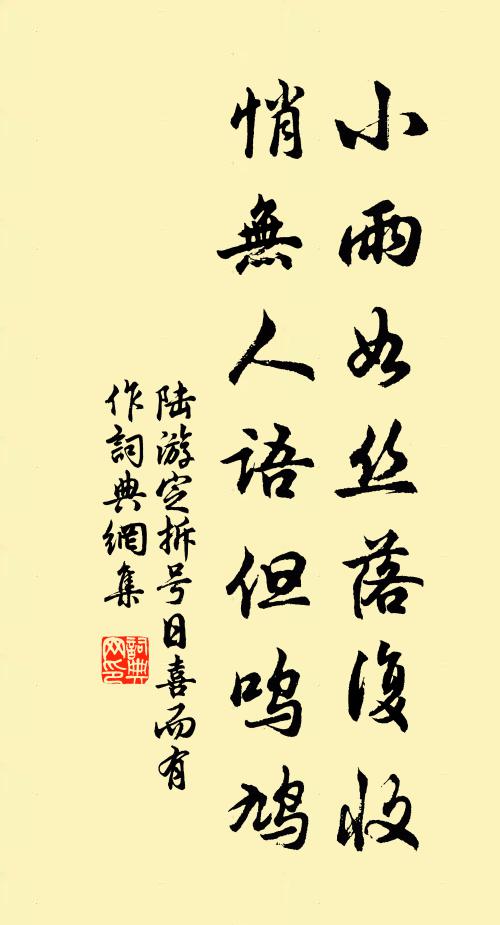 小雨如丝落復收
悄無人语但鸣鸠
陆游定拆号日喜而有
作詞典網集
詞典
网印